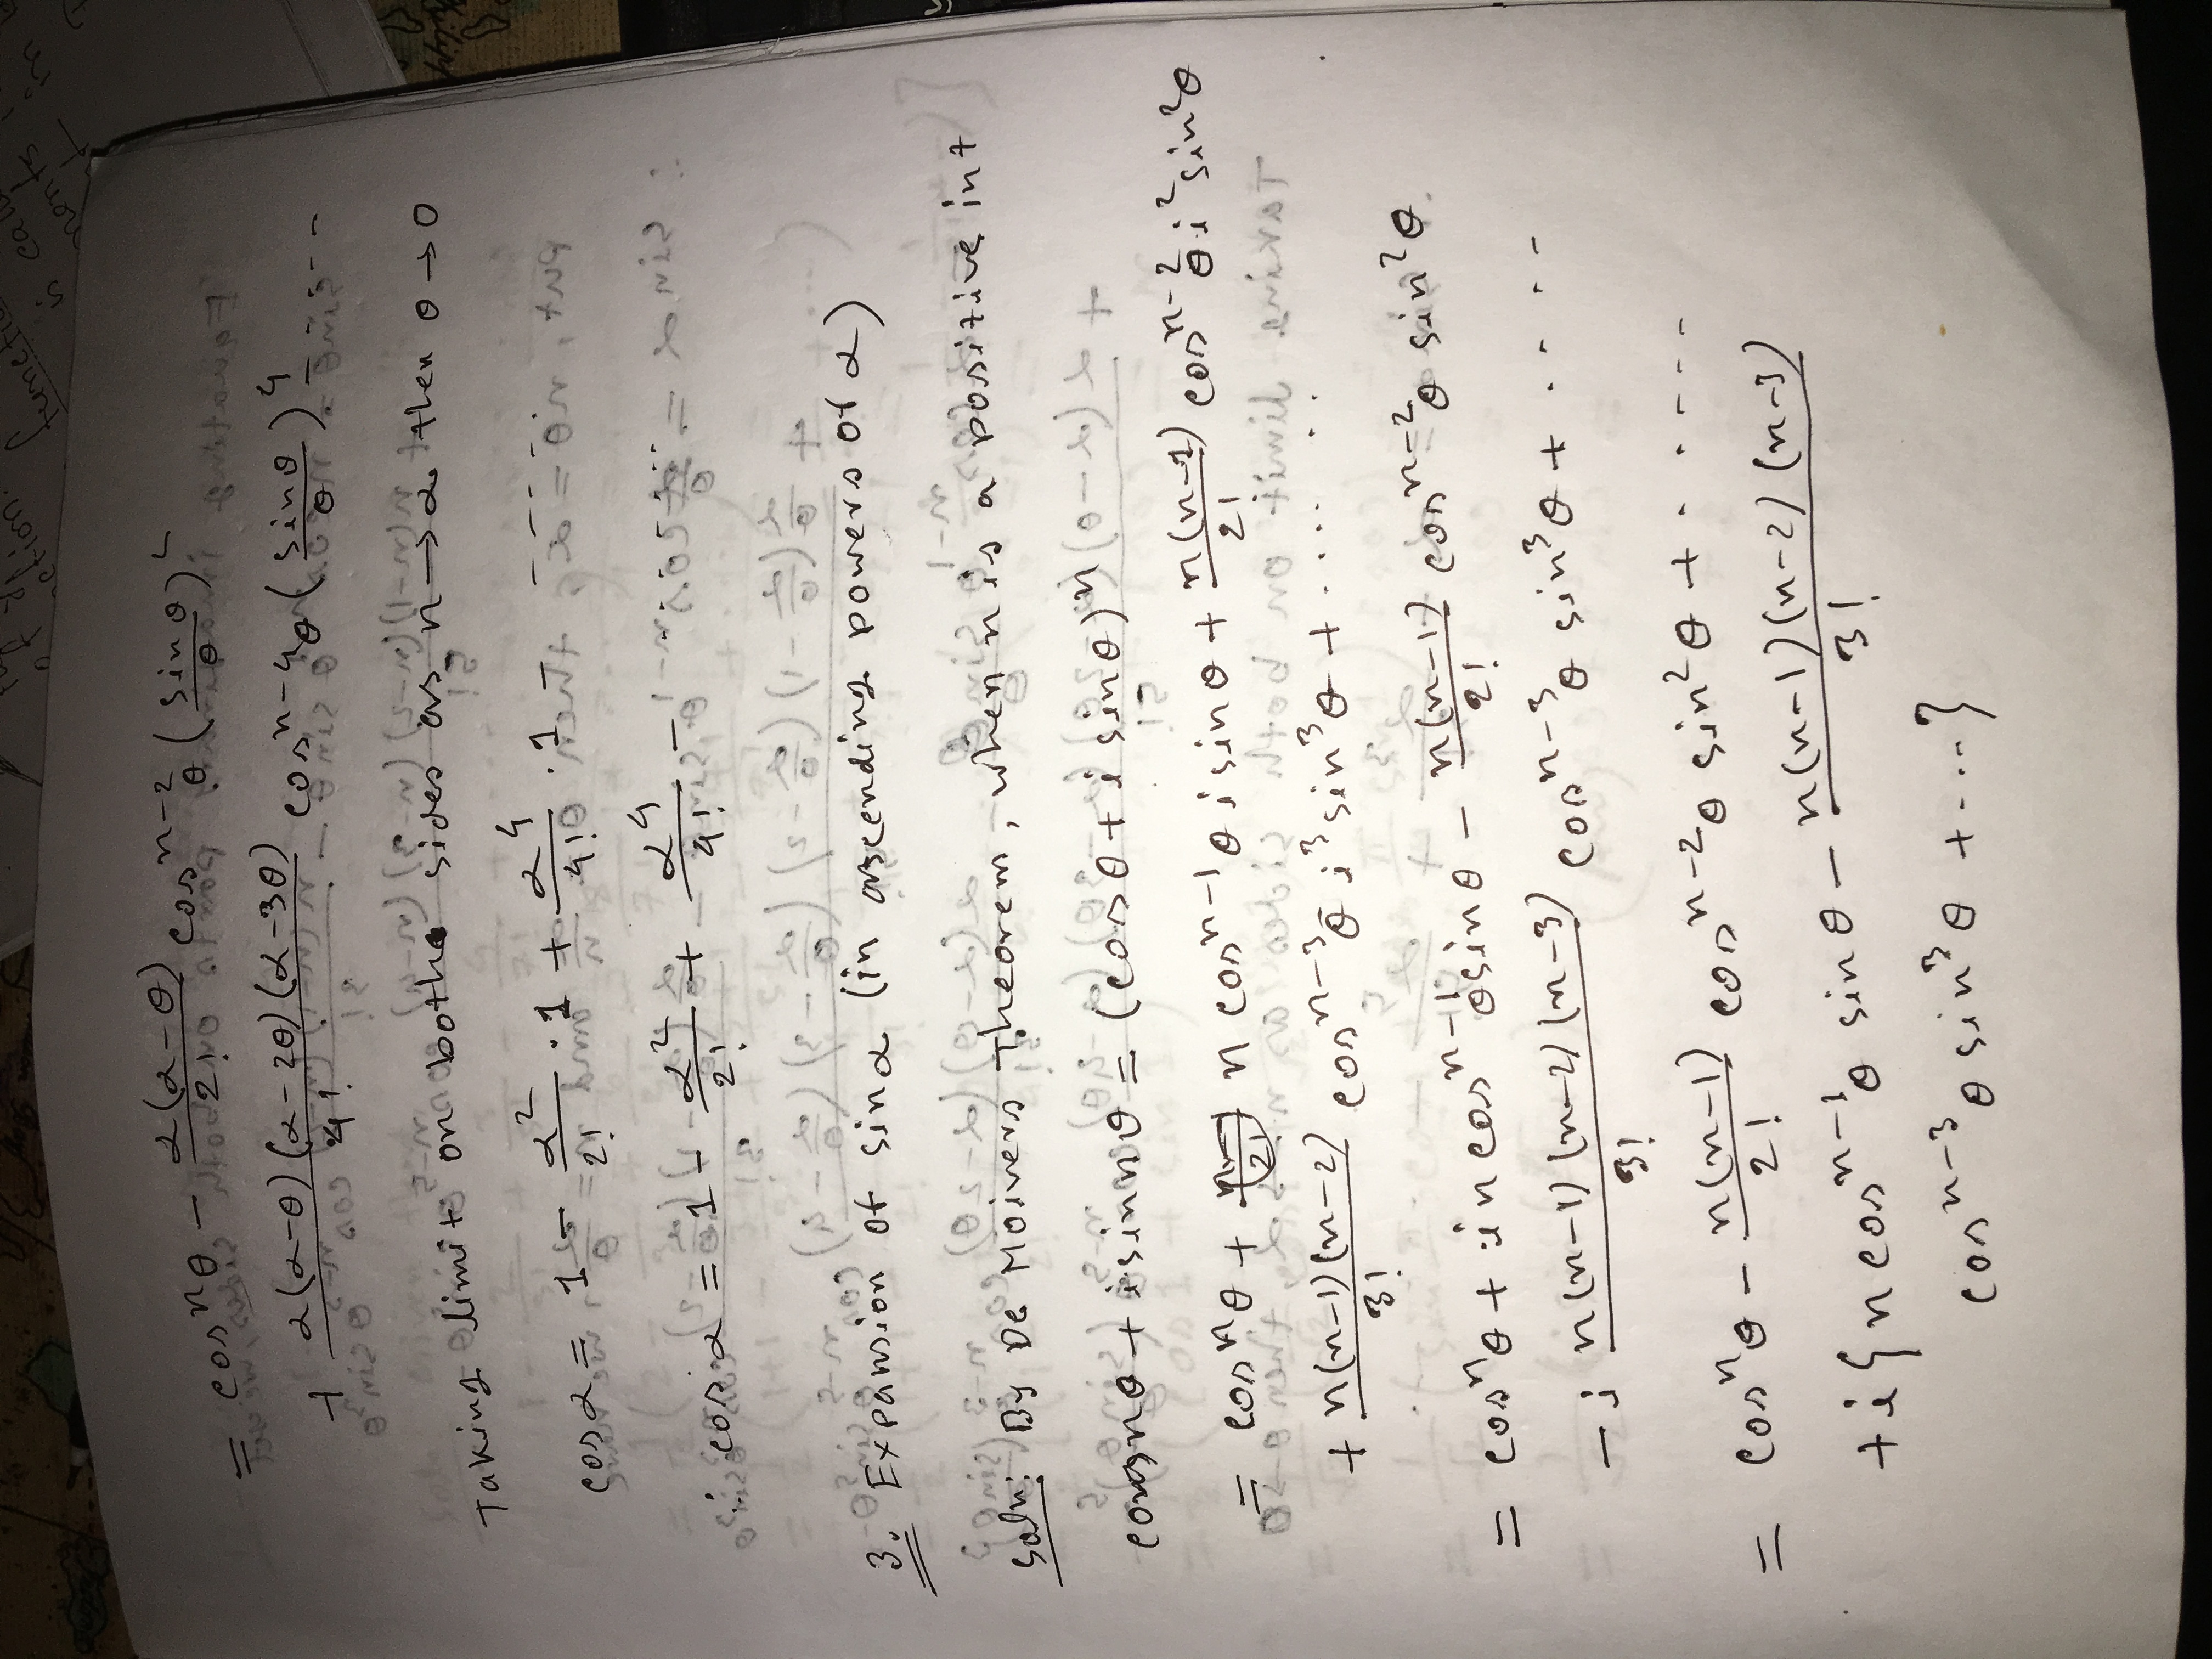 = cosⁿθ − α(α−θ)/2! cosⁿ⁻²θ (sinθ/θ)²
+ α(α−θ)(α−2θ)(α−3θ)/4! cosⁿ⁻⁴θ (sinθ/θ)⁴ ......
Taking limit on both sides as n→α then θ→0
cosα = 1 − α²/2! · 1 + α⁴/4! · 1 − ......
∴ cosα = 1 − α²/2! + α⁴/4! − ......
3. Expansion of sinα (in ascending powers of α)
Soln: By De Moivers Theorem, when n is a positive int
cosnθ + isinnθ = (cosθ + i sinθ)ⁿ
= cosⁿθ + n cosⁿ⁻¹θ i sinθ + n(n−1)/2! cosⁿ⁻²θ i² sin²θ
+ n(n−1)(n−2)/3! cosⁿ⁻³θ i³ sin³θ + ......
= cosⁿθ + i n cosⁿ⁻¹θ sinθ − n(n−1)/2! cosⁿ⁻²θ sin²θ
− i n(n−1)(n−2)(n−3)/3! cosⁿ⁻³θ sin³θ + .....
= cosⁿθ − n(n−1)/2! cosⁿ⁻²θ sin²θ + ......
+ i { n cosⁿ⁻¹θ sinθ − n(n−1)(n−2)(n−3)/3!
cosⁿ⁻³θ sin³θ + .... }